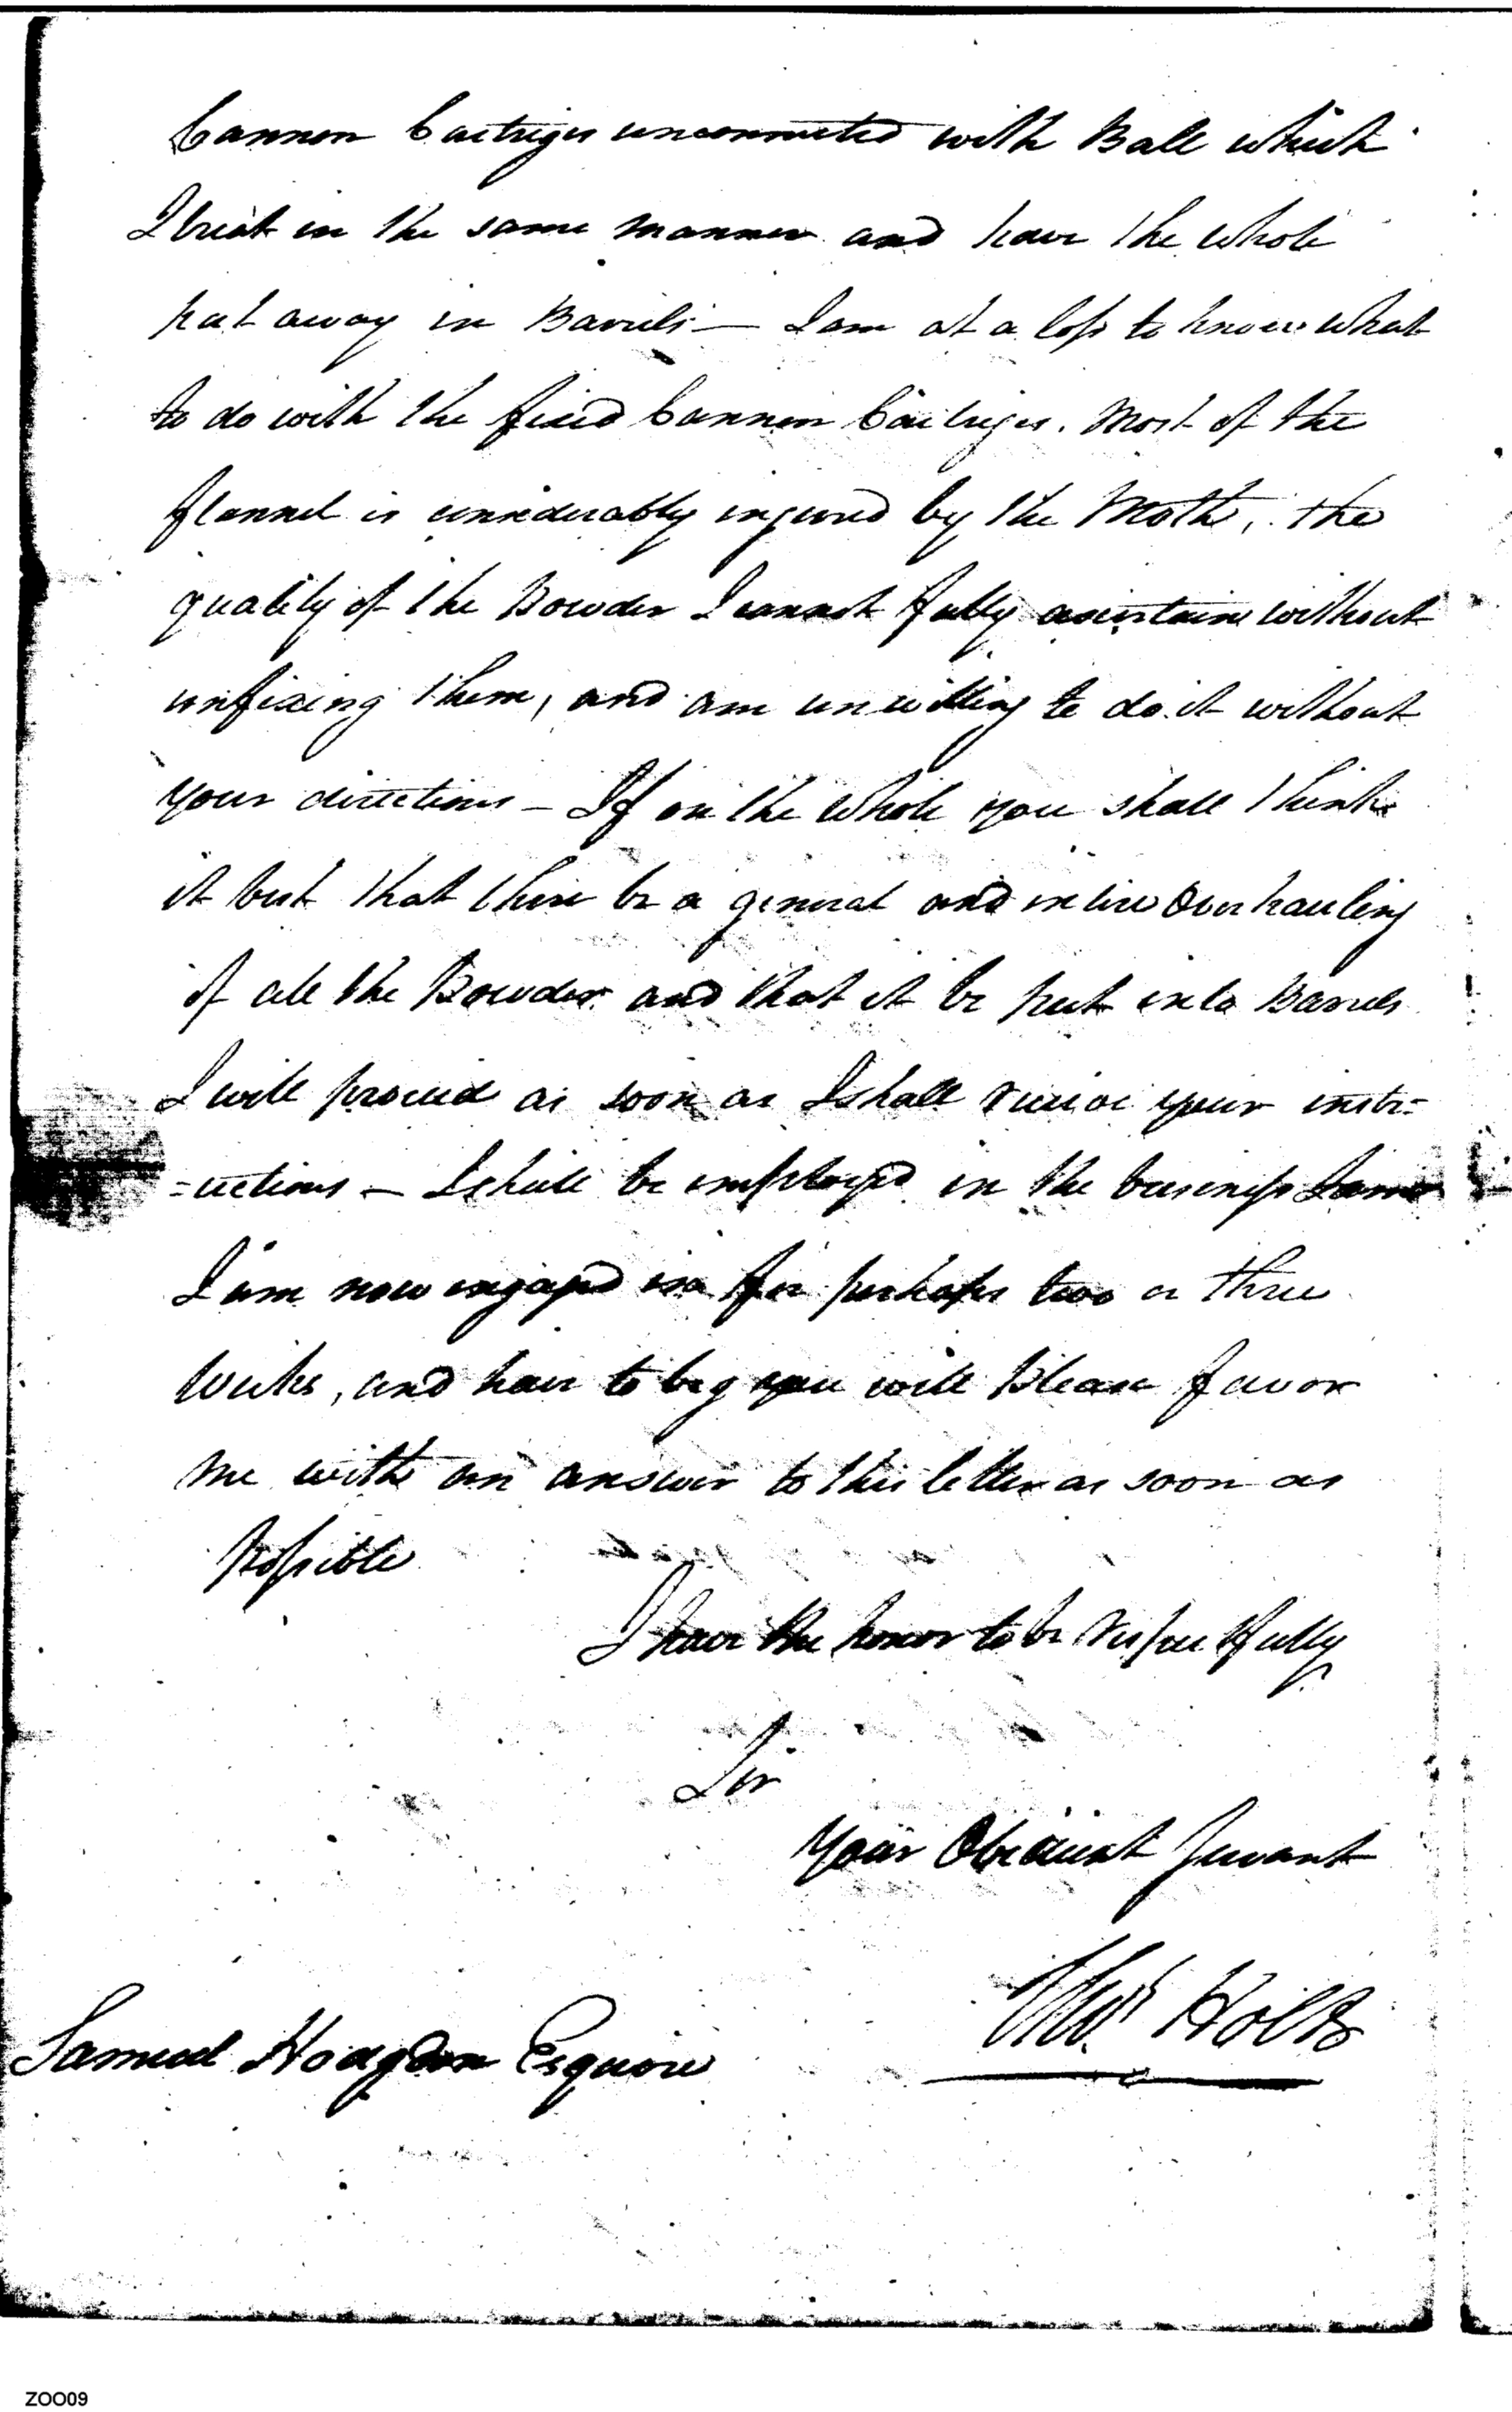 Cannon Cartriges unconnected with Ball which
I treat in the same manner and have the whole
put away in Barrels — I am at a loss to know what
to do with the fixed Cannon Cartriges. Most of the
flannel is considerably injured by the Moth, the
quality of the Powder I cannot fully ascertain without
unfixing them, and am unwilling to do it without
your directions — If on the whole you shall think
it best that there be a general and intire Overhauling
of all the Powder and that it be put into Barrels
I will proceed as soon as I shall receive your instr=
=uctions — I shall be employed in the business
I am now engaged in for perhaps two or three
Weeks, and have to beg you will Please favor
me with an answer to this letter as soon as
Possible
I have the honor to be respectfully
Sir
Your Obedient Servant
Thos Holt
Samuel Hodgdon Esquire
ZOO09